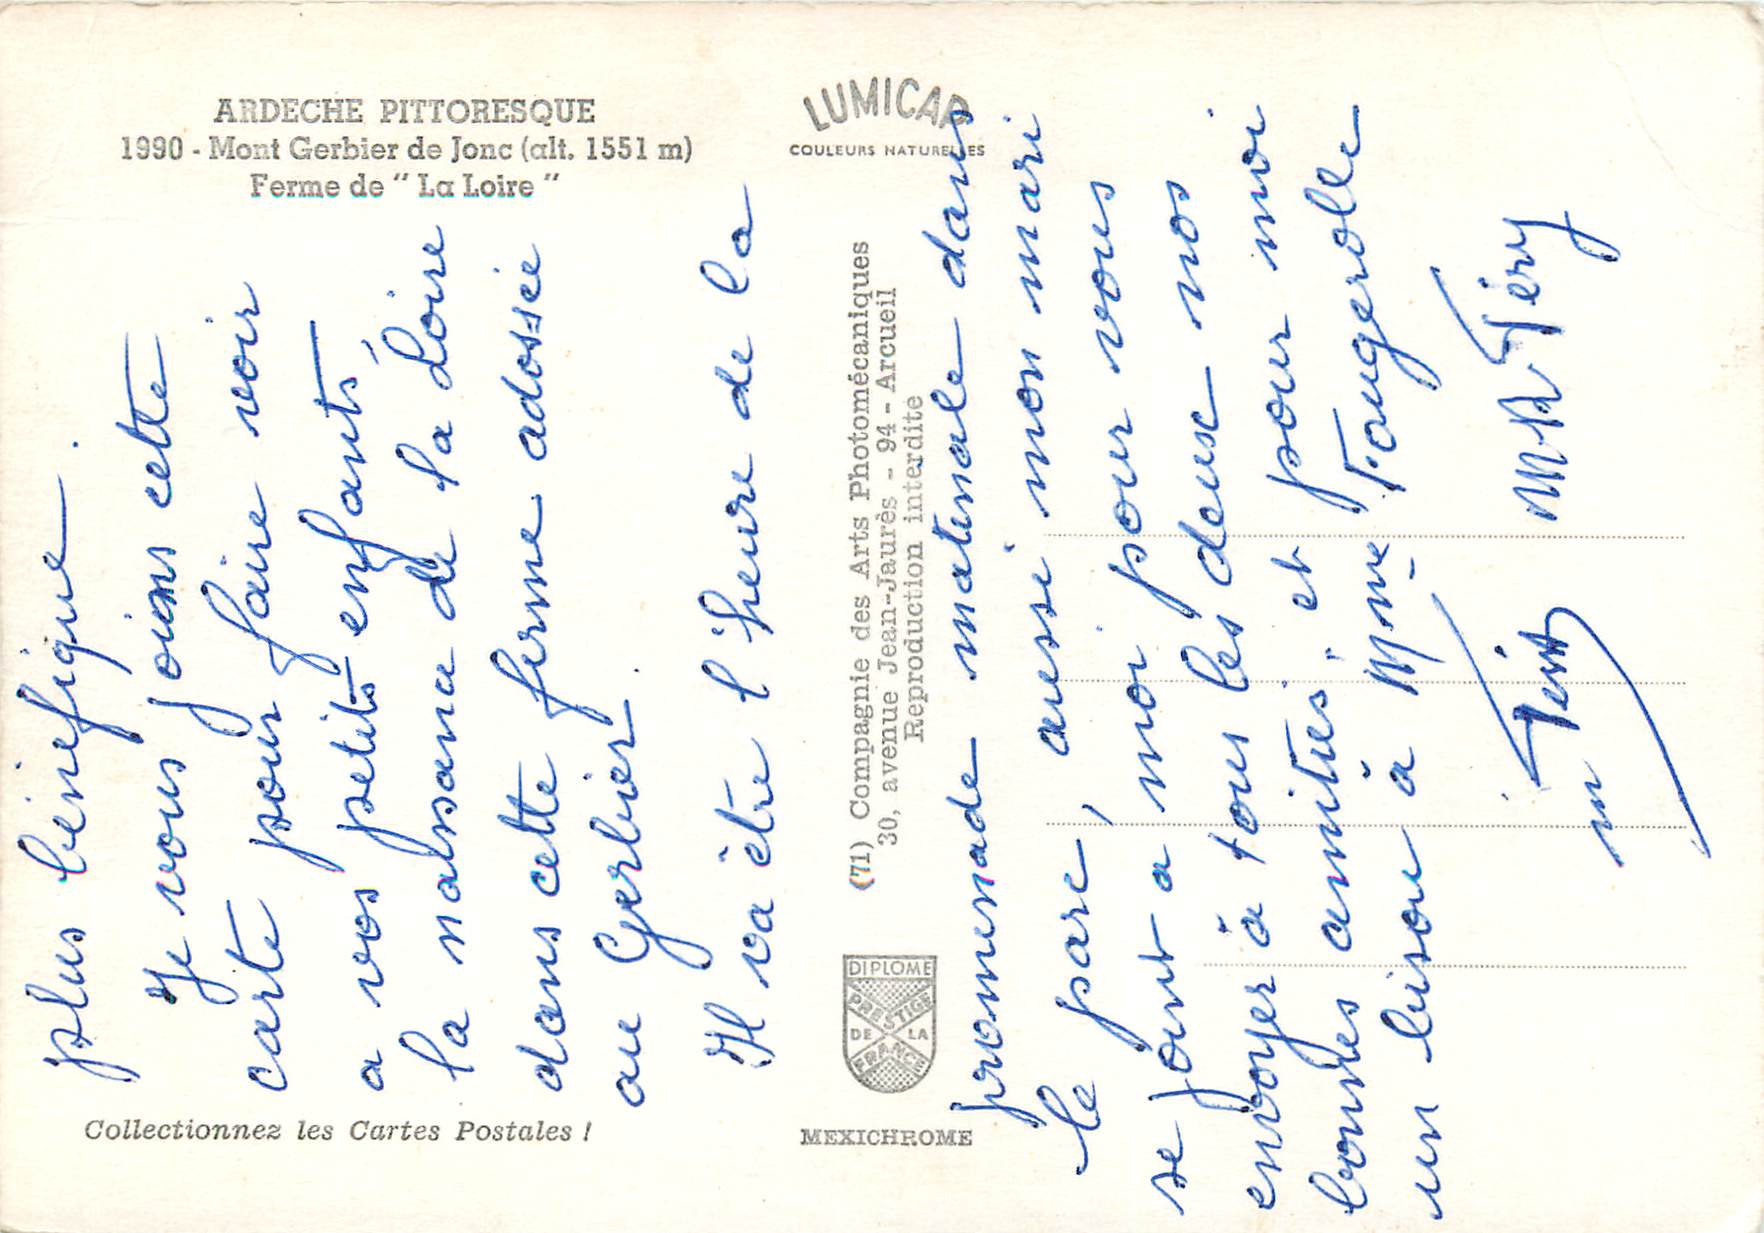 ARDECHE PITTORESQUE
1990 - Mont Gerbier de Jonc (alt. 1551 m)
Ferme de " La Loire "
LUMICAP
COULEURS NATURELLES
(71) Compagnie des Arts Photomécaniques
30, avenue Jean-Jaurès - 94 - Arcueil
Reproduction interdite
DIPLOME
PRESTIGE
DE LA
FRANCE
MEXICHROME
Collectionnez les Cartes Postales !
plus bénéfique.
Je vous joins cette
carte pour faire voir
a vos petits enfants,
la naissance de la Loire
dans cette ferme adossée
au Gerbier.
Il va être l'heure de la
promenade matinale dans
le parc, aussi mon mari
se joint a moi pour vous
envoyer à tous les deux nos
bonnes amitiés, et pour moi
un bisou à Mme Fougerolle